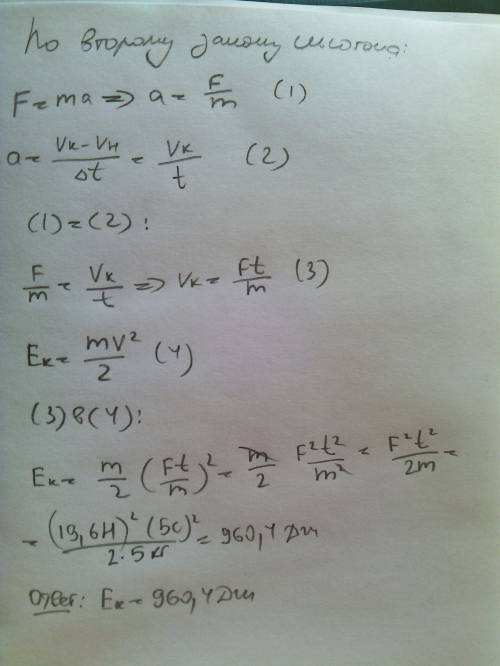 По второму закону Ньютона:
F = ma => a = F/m (1)
a = Vк - Vн / Δt = Vк/t (2)
(1) = (2) :
F/m = Vк/t => Vк = Ft/m (3)
Eк = mV²/2 (4)
(3) в (4) :
Eк = m/2 (Ft/m)² = m/2 F²t²/m² = F²t²/2m =
= (19,6Н)² (5с)² / 2·5 кг = 960,4 Дж
Ответ: Eк = 960,4 Дж